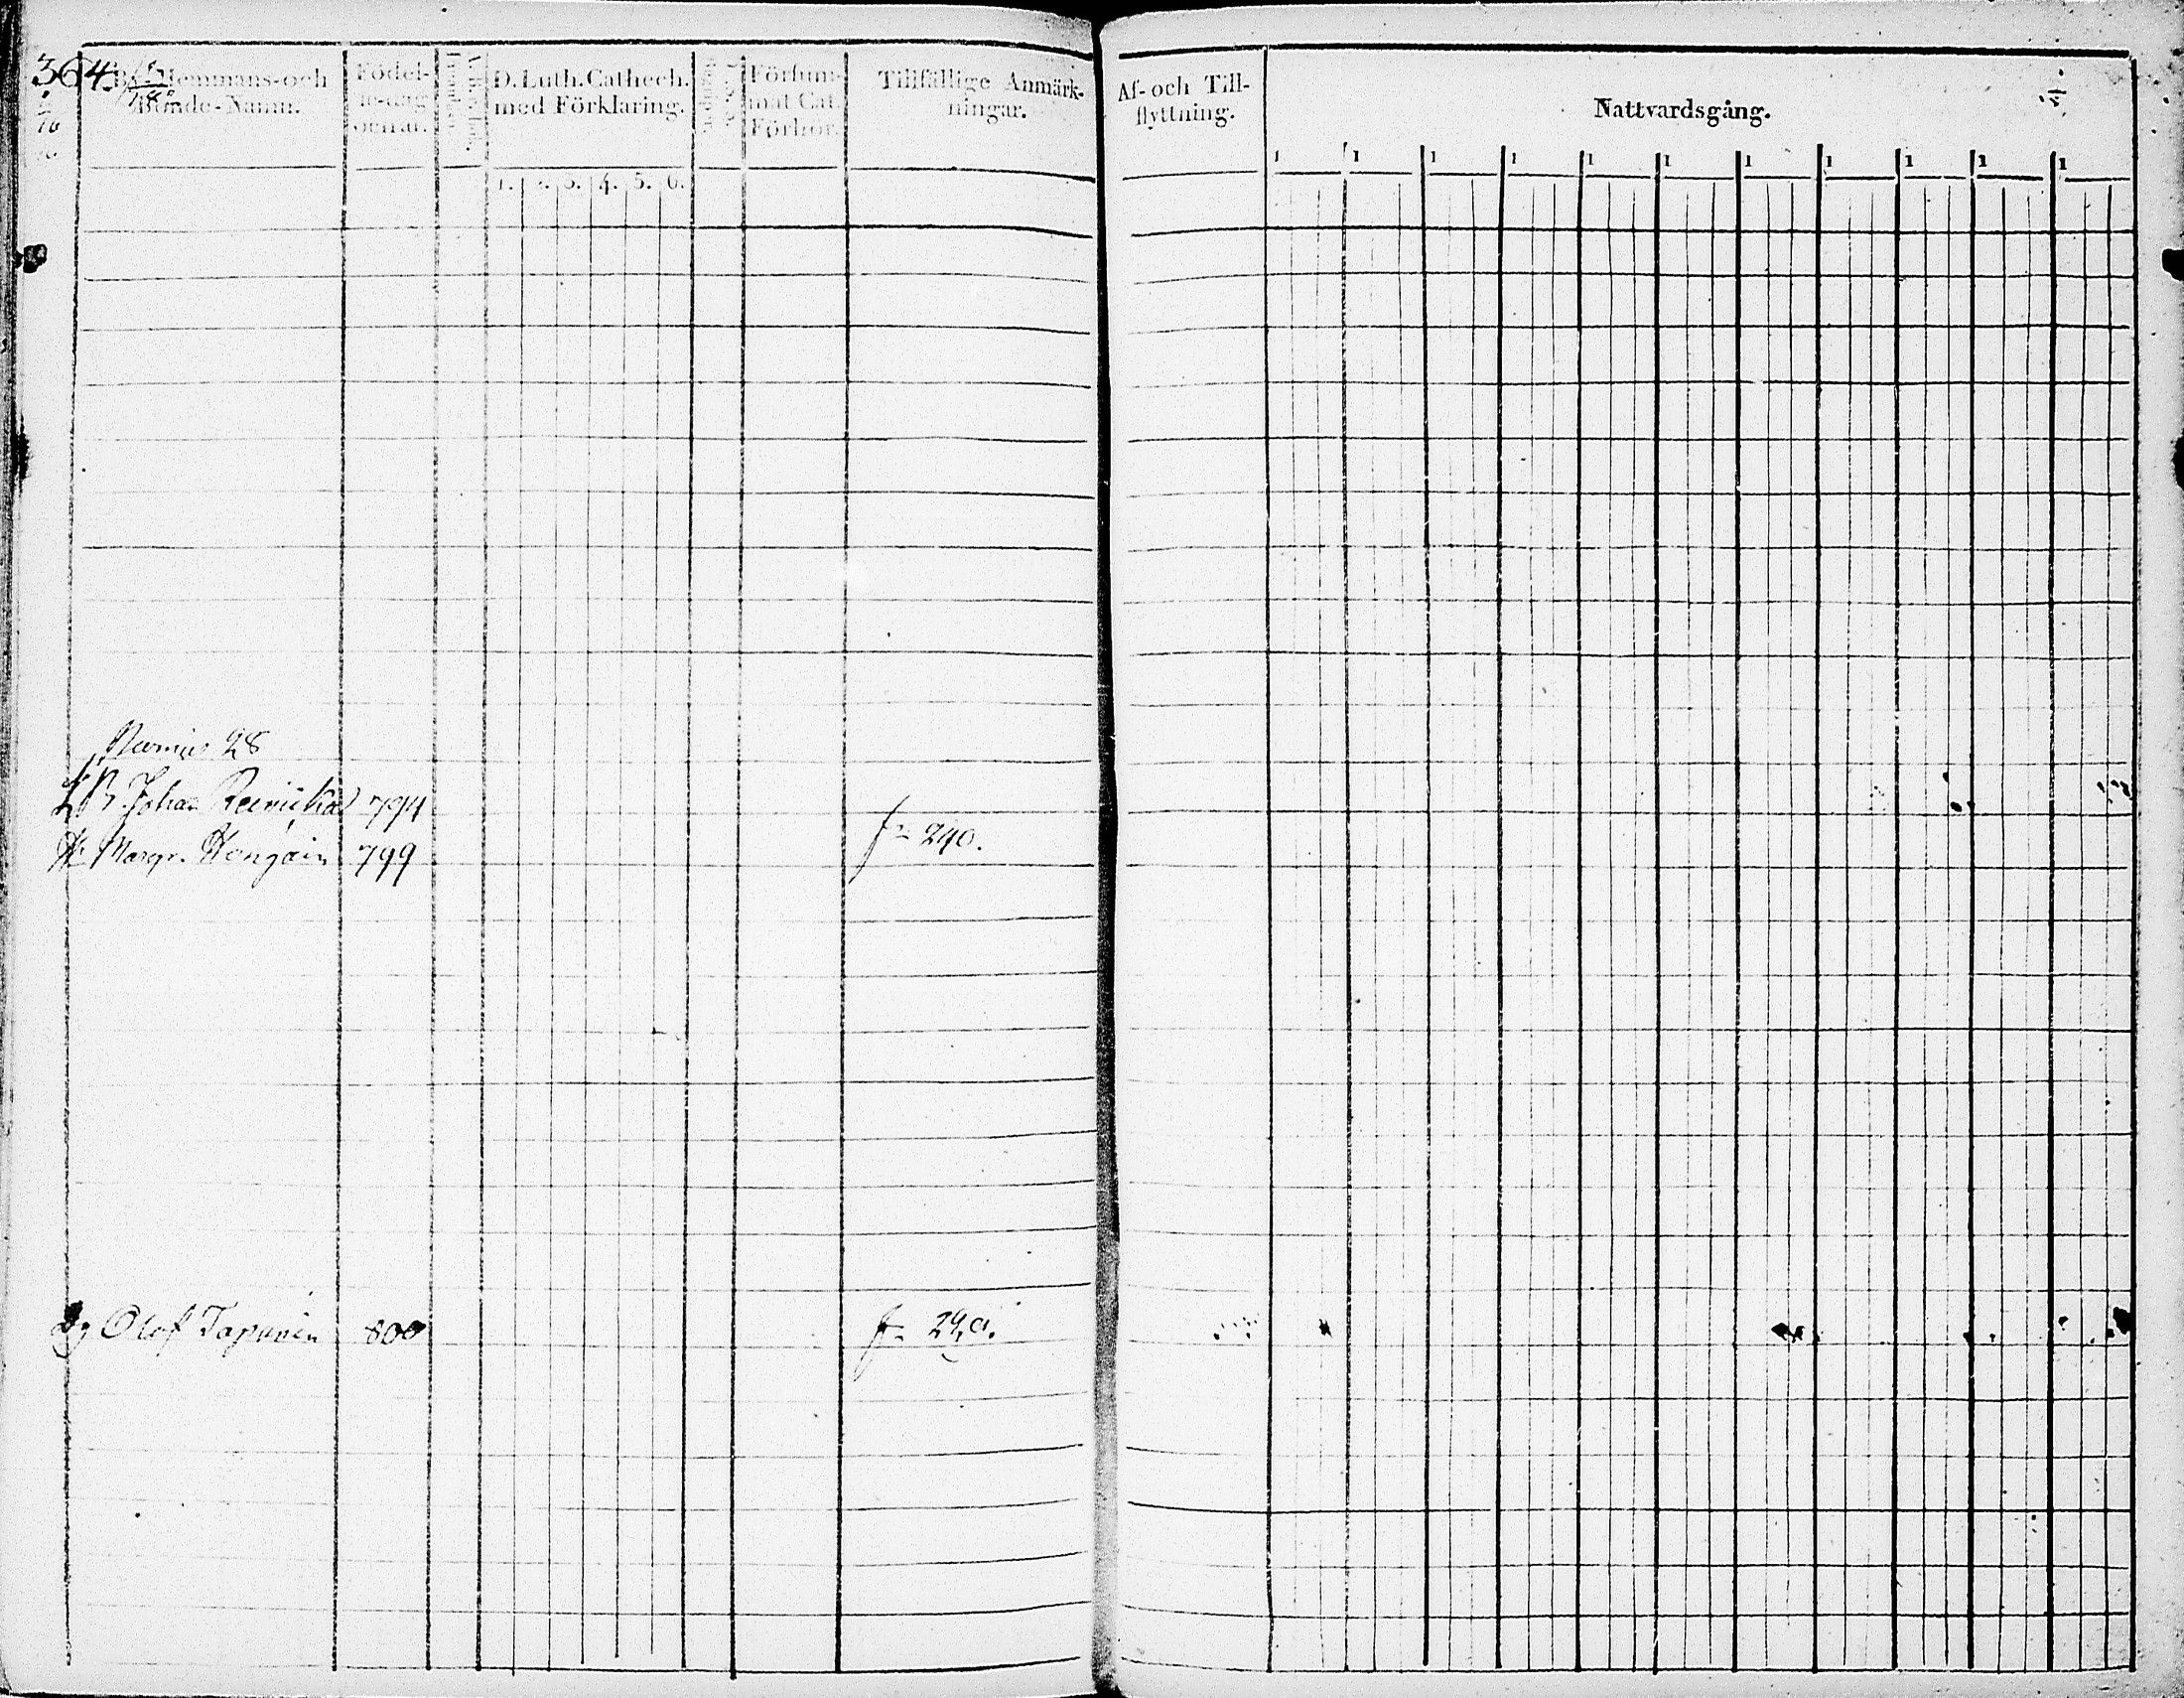 364.
By, Hemmans- och Bonde-Namn.
Födel-
se-dag
och år.
D. Luth. Cathech.
med Förklaring.
Försum-
mat Cat.
Förhör.
Tillfällige Anmärk-
ningar.
Af- och Till-
flyttning.
Nattvardsgång.
1. 2. 3. 4. 5. 6.
1 1 1 1 1 1 1 1 1 1 1
Nurmis 28
Johan 794
f- 240.
H. Margr. 799
Olof Tapanin 800
f- 240.